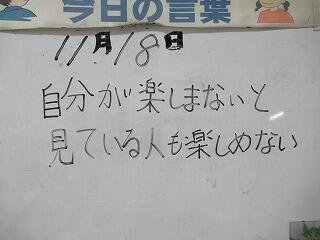 今日の言葉
11月18日
自分が楽しまないと
見ている人も楽しめない